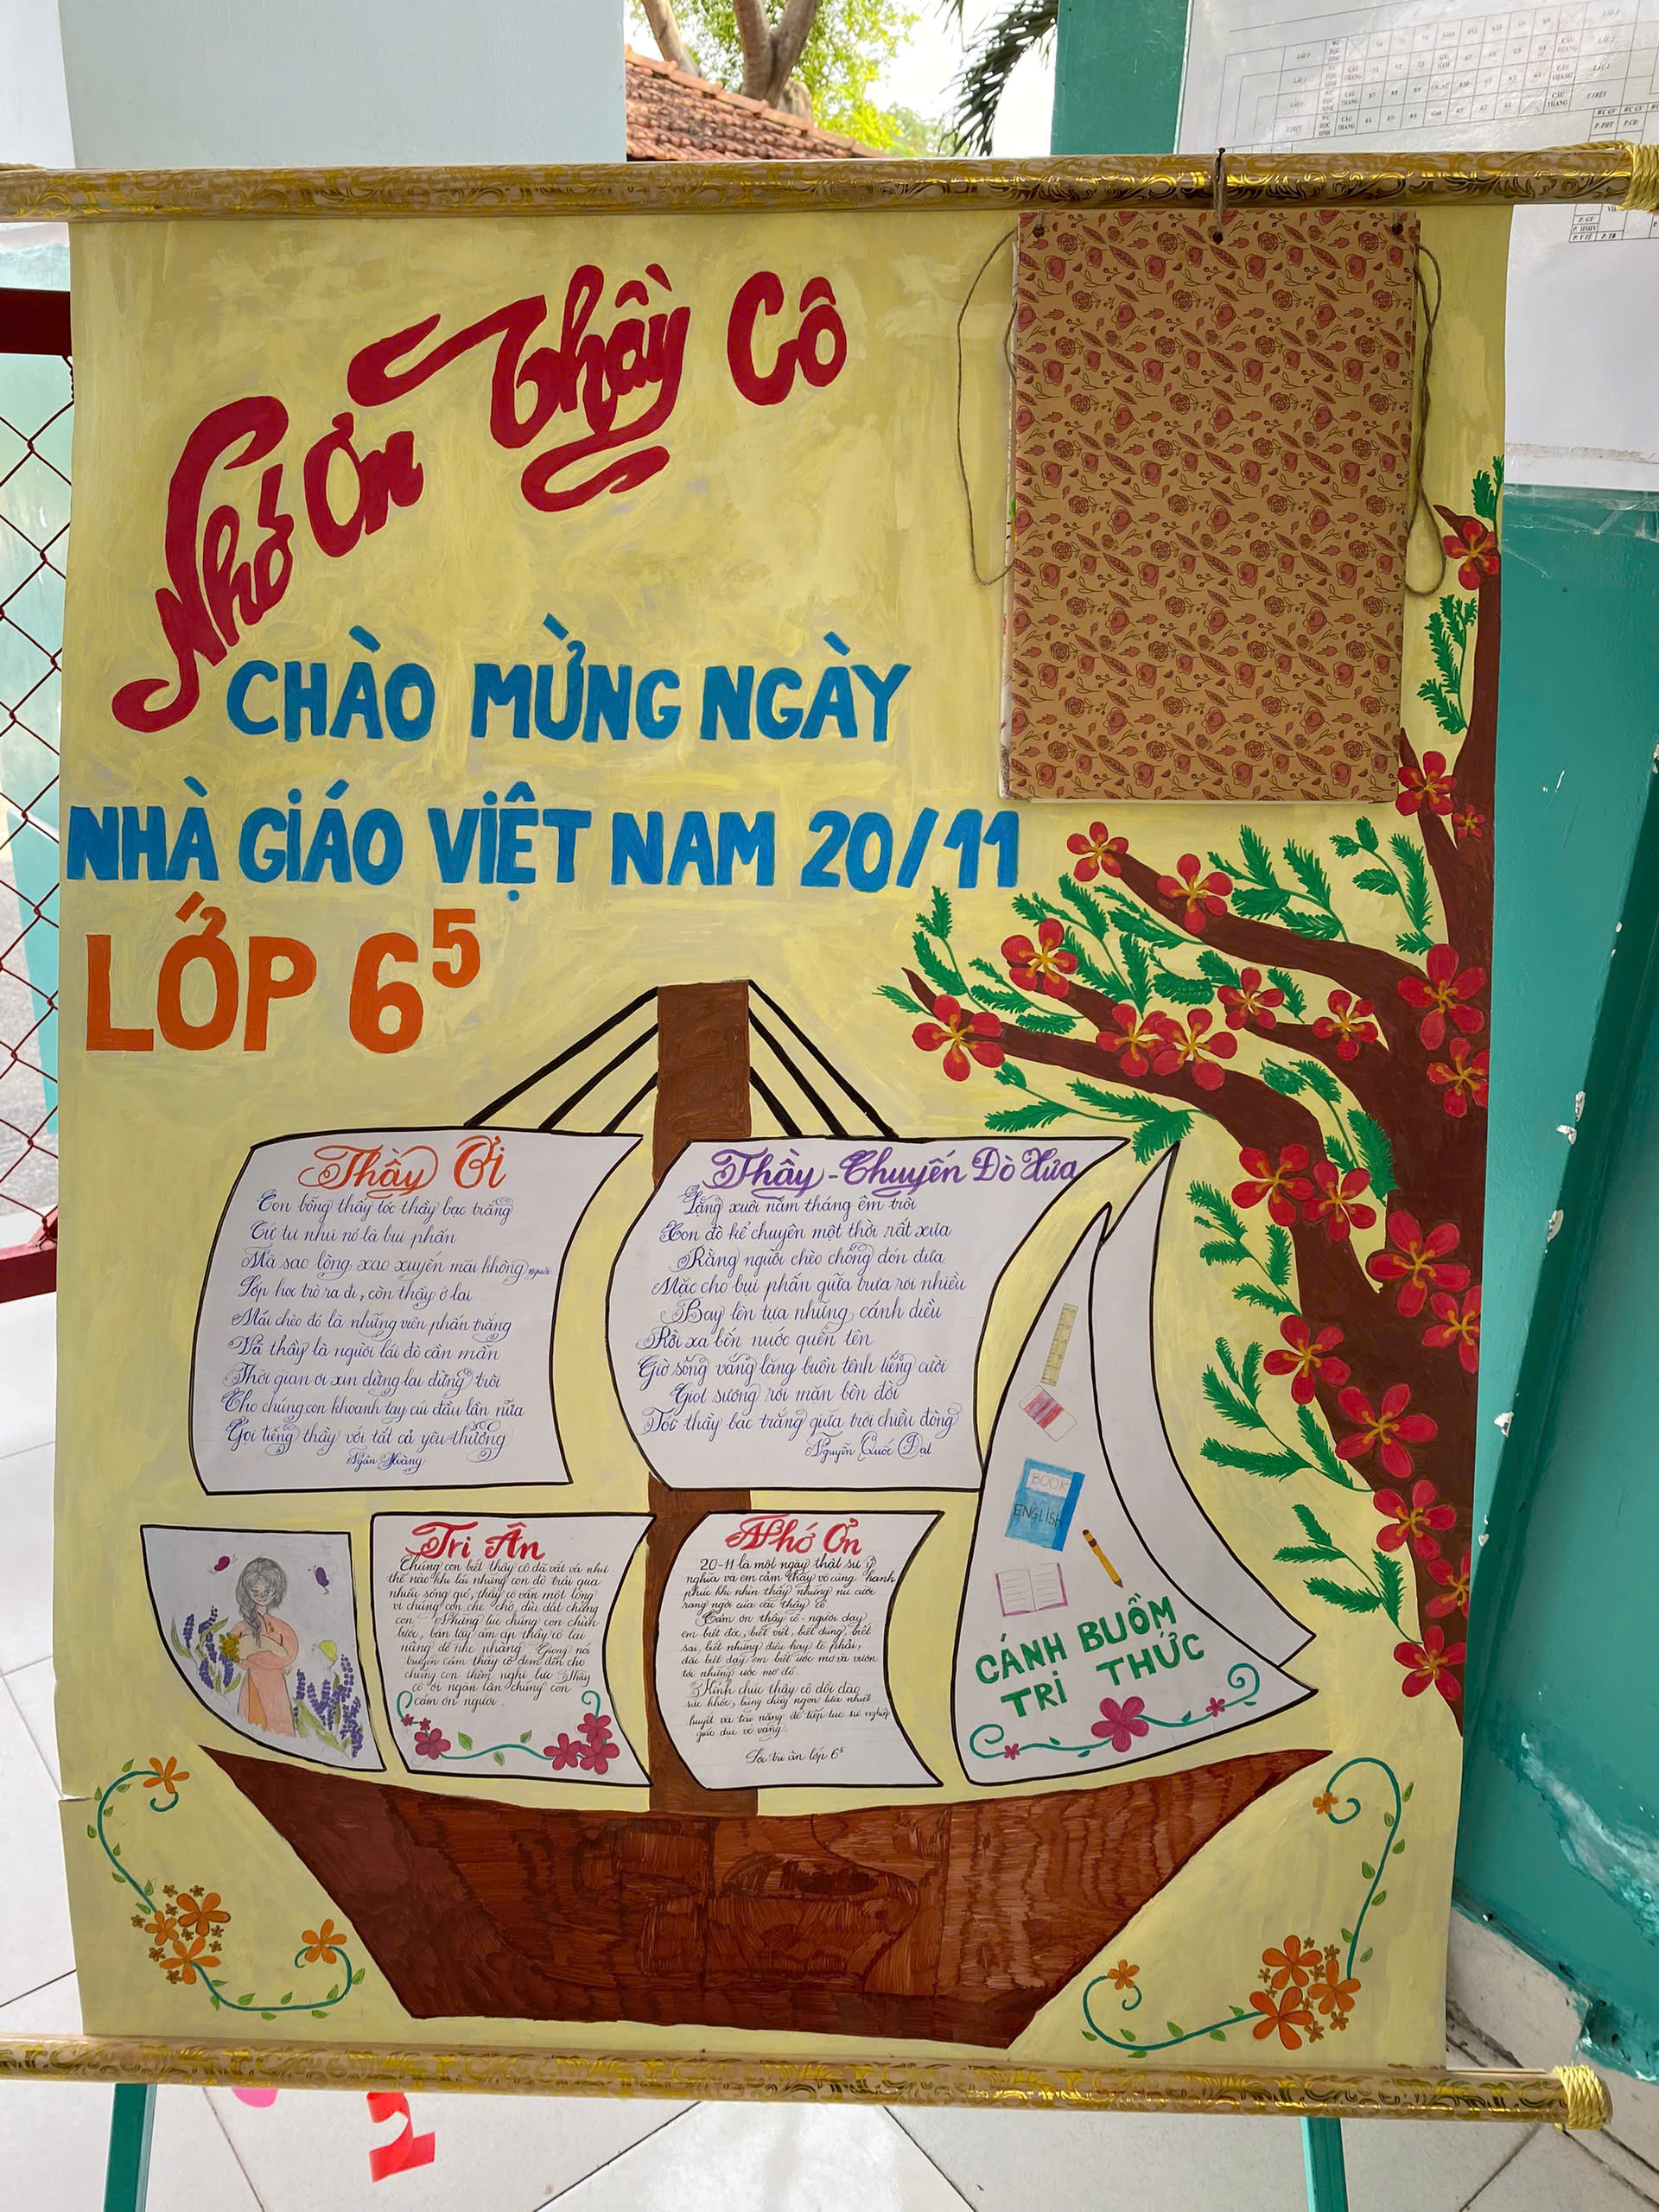 Nhớ Ơn Thầy Cô
CHÀO MỪNG NGÀY
NHÀ GIÁO VIỆT NAM 20/11
LỚP 6⁵
Thầy Ơi
Con bỗng thấy tóc thầy bạc trắng
Cứ tự nhủ nó là bụi phấn
Mà sao lòng xao xuyến mãi không nguôi
Lớp học trò ra đi, còn thầy ở lại
Mái chèo đó là những viên phấn trắng
Và thầy là người lái đò cần mẫn
Thời gian ơi xin dừng lại đừng trôi
Cho chúng con khoanh tay cúi đầu lần nữa
Gọi tiếng thầy với tất cả yêu thương
Ngân Hoàng
Thầy - Chuyến Đò Xưa
Lặng xuôi năm tháng êm trôi
Con đò kể chuyện một thời rất xưa
Rằng người chèo chống đón đưa
Mặc cho bụi phấn giữa trưa rơi nhiều
Bay lên tựa những cánh diều
Rồi xa bến nước quên tên
Giờ sông vắng lặng buồn tênh tiếng cười
Giọt sương rơi mặn bên đời
Tóc thầy bạc trắng giữa trời chiều đông
Nguyễn Quốc Đạt
Tri Ân
Chúng con biết thầy cô đã vất vả như
thế nào khi lái những con đò trải qua
nhiều sóng gió, thầy cô vẫn một lòng
vì chúng con che chở, dìu dắt chúng
con. Những lúc chúng con chùn
bước, bàn tay ấm áp thầy cô lại
nâng đỡ nhẹ nhàng. Giọng nói
truyền cảm thầy cô đem đến cho
chúng con thêm nghị lực. Thầy
cô ơi ngàn lần chúng con
cảm ơn người.
Nhớ Ơn
20-11 là một ngày thật sự ý
nghĩa và em cảm thấy vô cùng hạnh
phúc khi nhìn thấy những nụ cười
rạng ngời của các thầy cô
Cảm ơn thầy cô - người dạy
em biết đọc, biết viết, biết đúng, biết
sai, biết những điều hay lẽ phải,
đặc biệt dạy em biết ước mơ và vươn
tới những ước mơ đó.
Kính chúc thầy cô dồi dào
sức khỏe, bùng cháy ngọn lửa nhiệt
huyết và tài năng để tiếp tục sự nghiệp
giáo dục vẻ vang.
Lời tri ân lớp 6⁵
BOOK
ENGLISH
CÁNH BUỒM
TRI THỨC